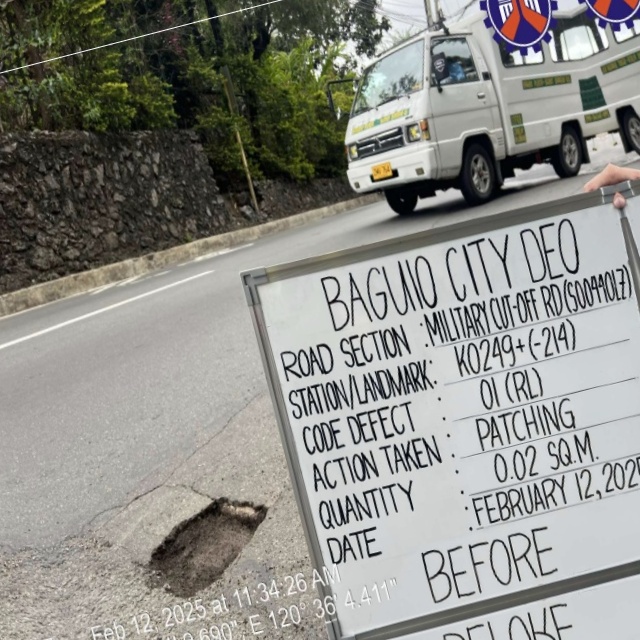 BAGUIO CITY DEO
ROAD SECTION : MILITARY CUT-OFF RD (S00449017)
STATION/LANDMARK : K0249+(-214)
CODE DEFECT : 01 (RL)
ACTION TAKEN : PATCHING
QUANTITY : 0.02 SQ.M.
DATE : FEBRUARY 12, 2025
BEFORE
Feb 12, 2025 at 11:34:26 AM
E 120° 36' 4.411"